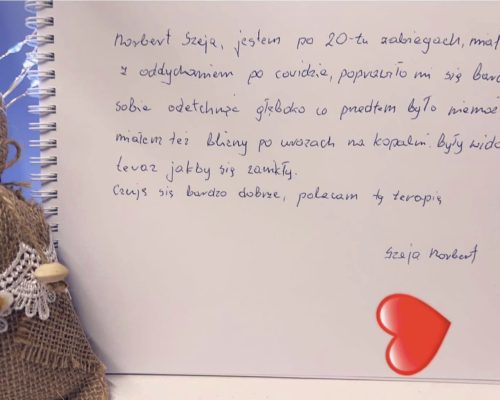 Norbert Szeja, jestem po 20-tu zabiegach, miał
z oddychaniem po covidzie, poprawiło mi się bard
sobie odetchnąć głęboko co przedtem było niemoż
miałem też blizny po urazach na kopalni. były wido
teraz jakby się zanikły.
Czuję się bardzo dobrze, polecam tę terapię
Szeja Norbert